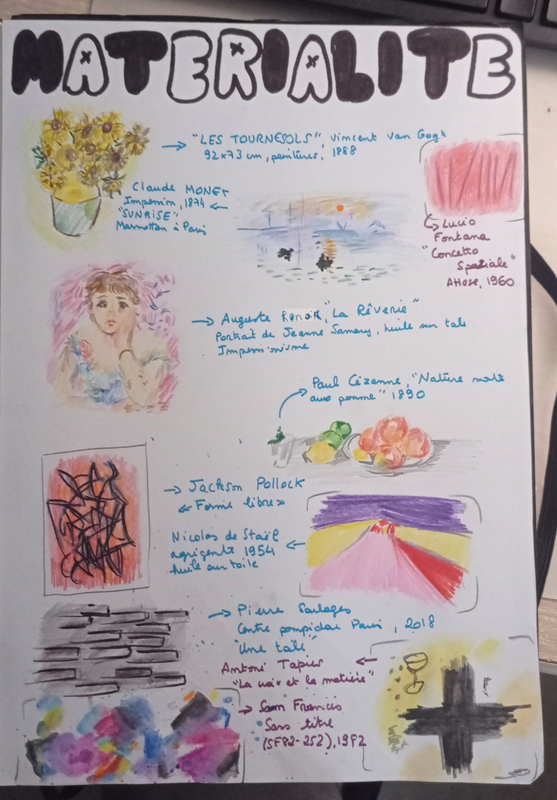 MATERIALITE
"LES TOURNESOLS", Vincent Van Gogh
92x73 cm, peintures, 1888
Claude MONET
Impression, 1874
"SUNRISE"
Marmottan à Paris
Lucio
Fontana
"Concetto
Spaziale"
Attese, 1960
Auguste Renoir, "La Rêverie"
Portrait de Jeanne Samary, huile sur toile
Impressionisme
Paul Cézanne, "Nature morte
aux pomme" 1890
Jackson Pollock
"Forme libre"
Nicolas de Staël
agrigente 1954
huile sur toile
Pierre Soulages
Centre pompidou Paris, 2018
"Une toile"
Antoni Tapies
"La croix et la matière"
Sam Francis
Sans titre
(SF82-252), 1982